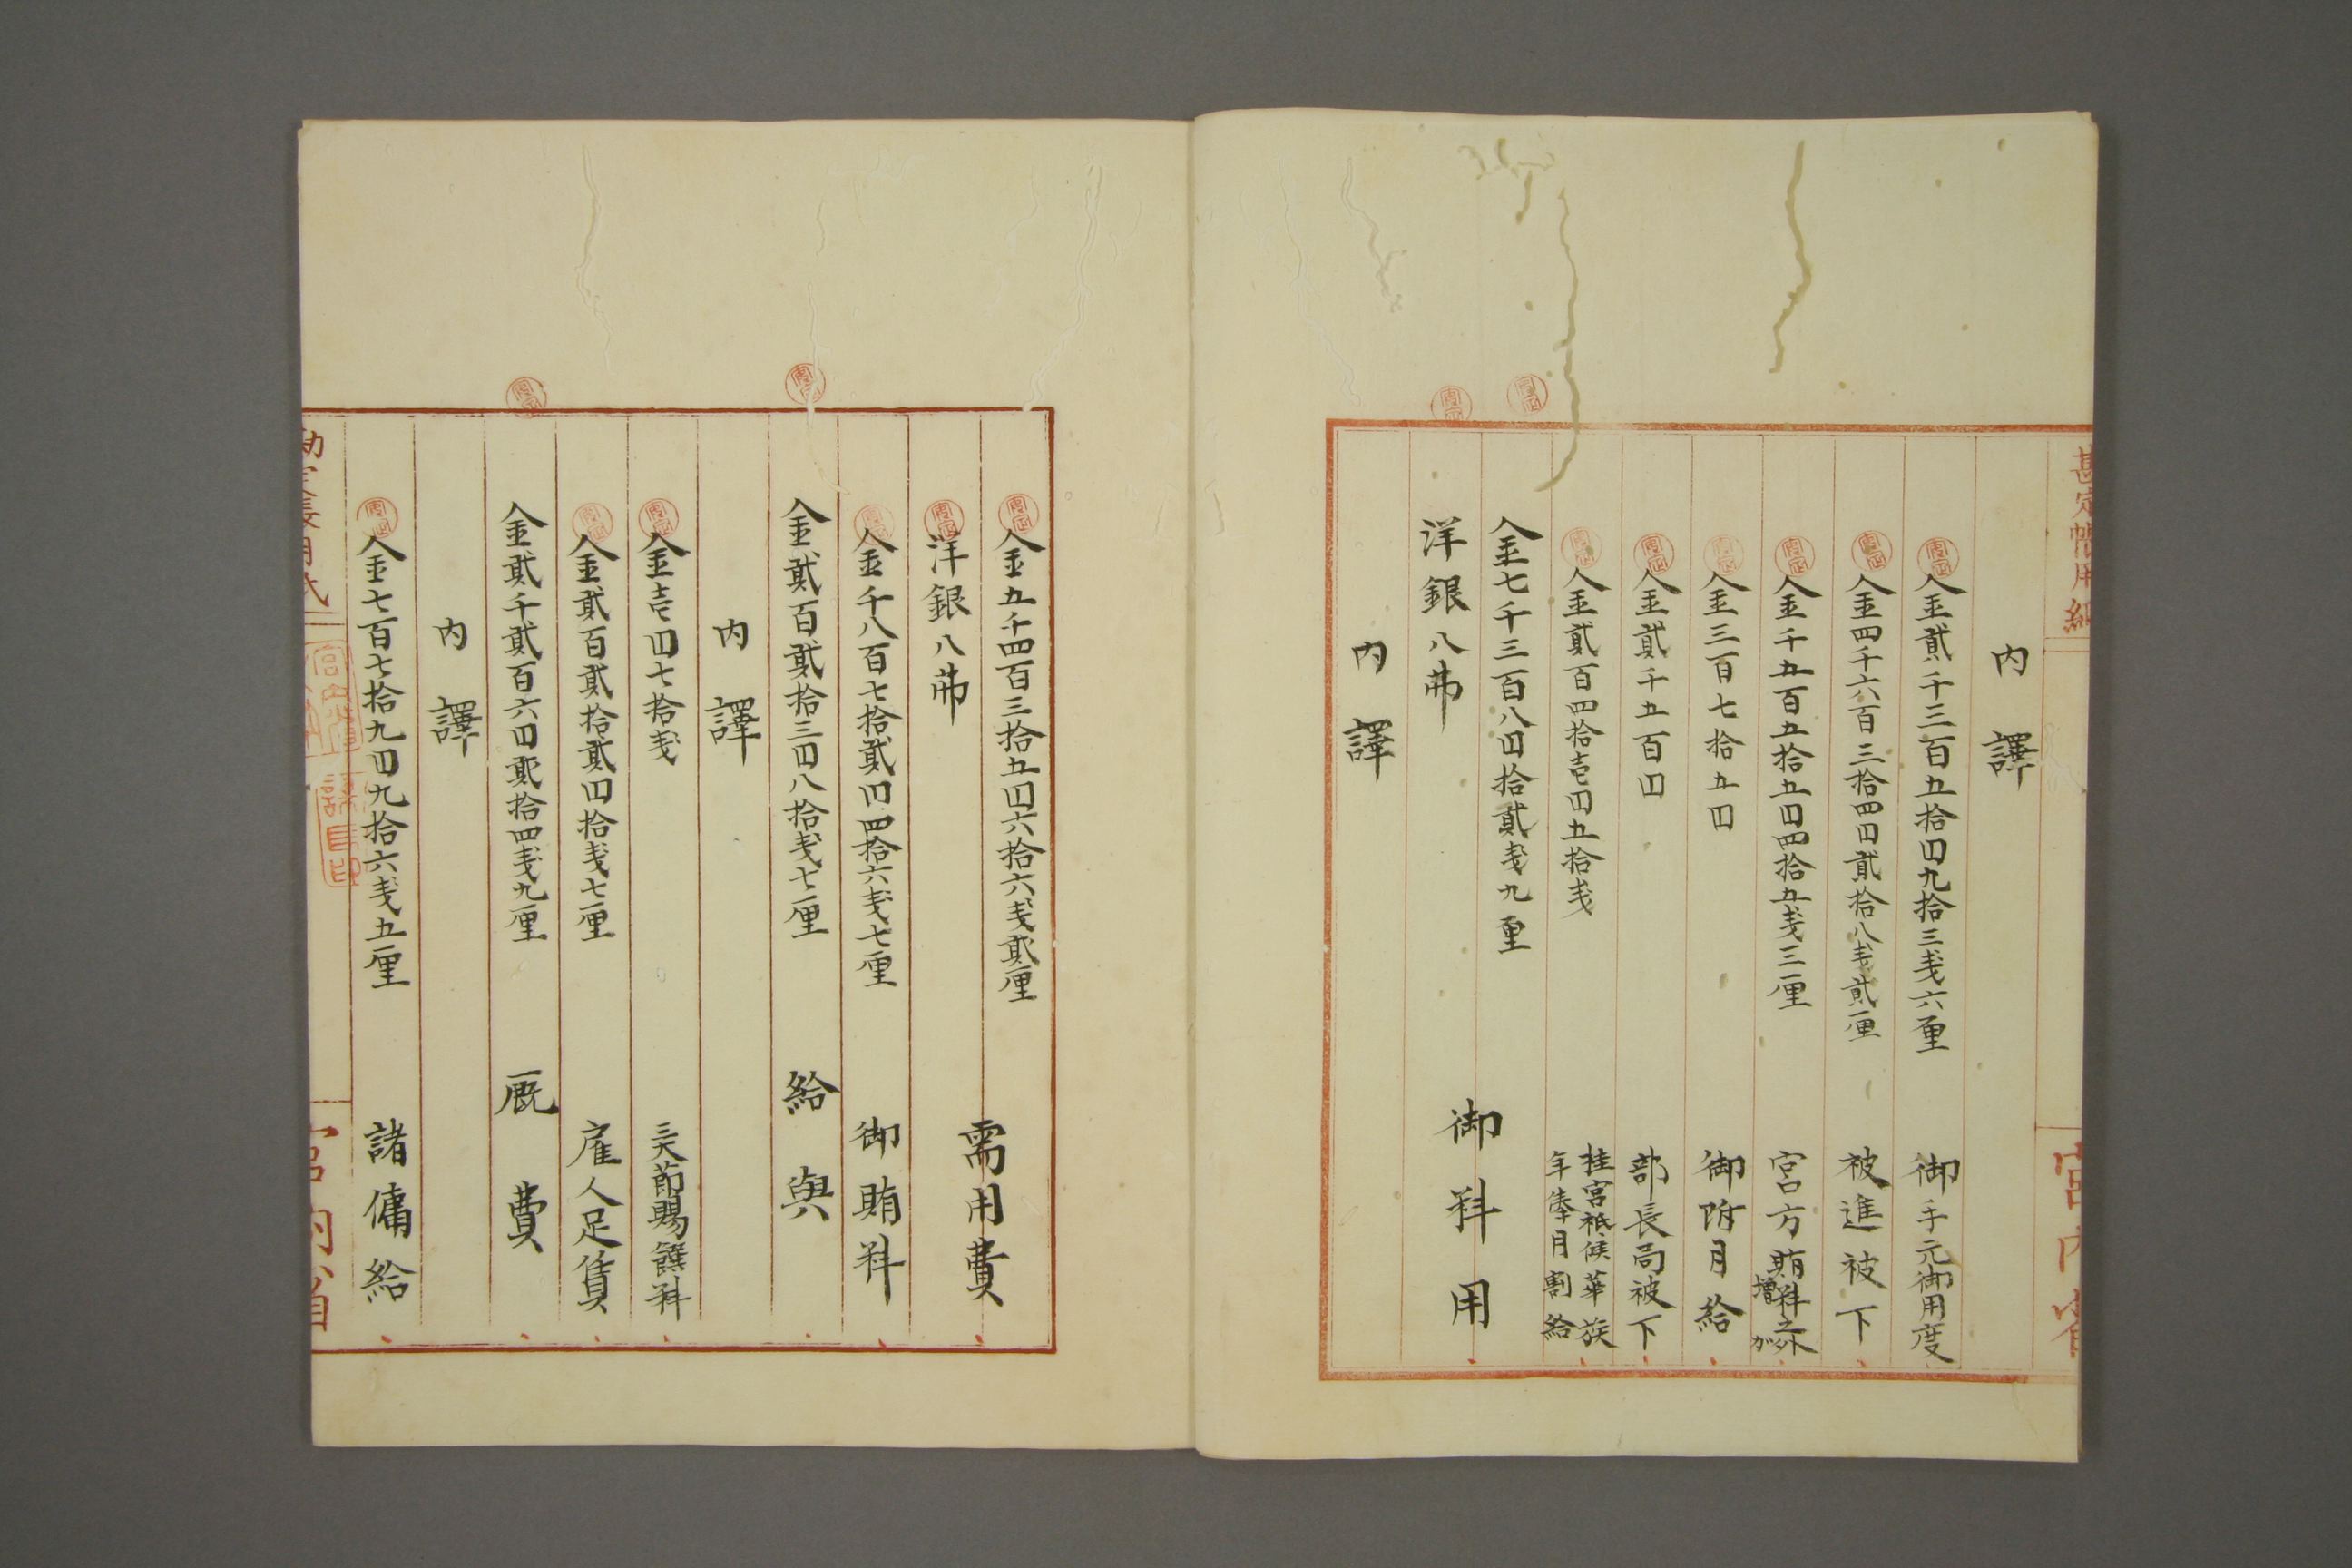 勘定帳用紙
宮内省
内譯
金貳千三百五拾円九拾三戔六厘 御手元御用度
金四千六百三拾四円貳拾八戔貳厘 被進被下
金千五百五拾五円四拾五戔三厘 宮方賄料之外増
金三百七拾五円 御附月給
金貳千五百円 部長局被下
金貳百四拾壱円五拾戔 桂宮祗候華族年俸月割給
金七千三百八円拾貳戔九厘
洋銀八弗 御料用
内譯
金五千四百三拾五円六拾六戔貳厘
洋銀八弗 需用費
金千八百七拾貳円四拾六戔七厘 御賄料
金貳百貳拾三円八拾戔七厘 給與
内譯
金壱円七拾戔 三大節賜饌料
金貳百貳拾貳円拾戔七厘 雇人足賃
金貳千貳百六円貳拾四戔九厘 厩費
内譯
金七百七拾九円九拾六戔五厘 諸傭給
勘定帳用紙
宮内省